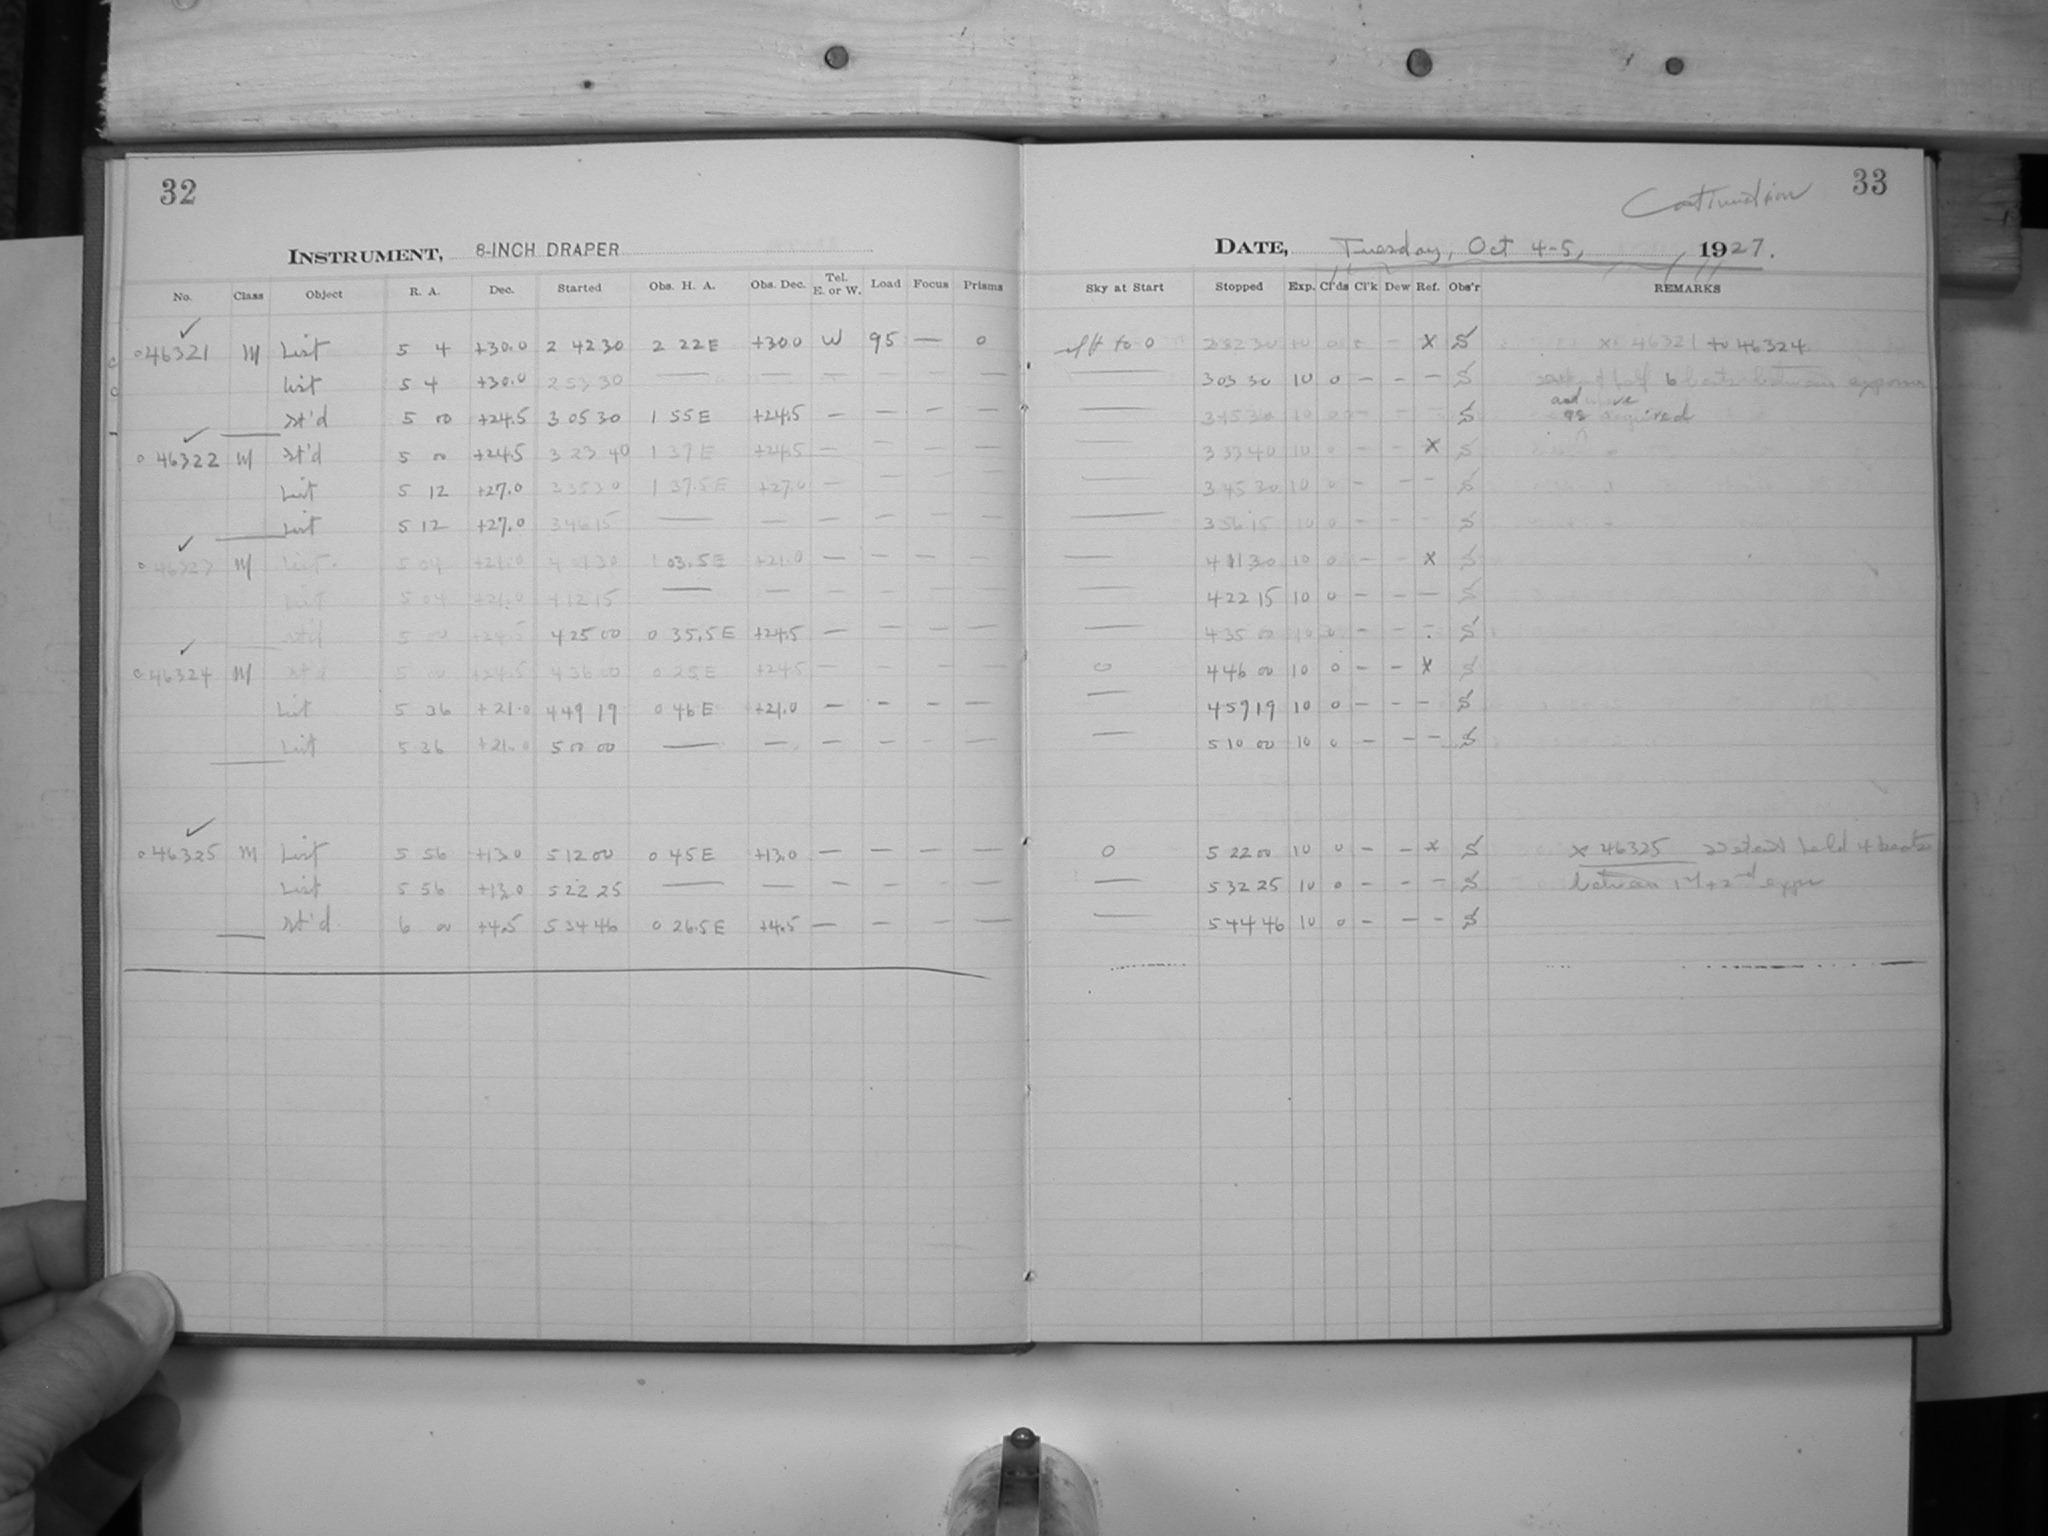 32
INSTRUMENT, 8-INCH DRAPER
No. Class Object R. A. Dec. Started Obs. H. A. Obs. Dec. Tel. E. or W. Load Focus Prisms
46321 M List 5 4 +30.0 2 42 30 2 22 E +30.0 W 95 — 0
List 5 4 +30.0 2 53 30 — — — — — —
St'd 5 00 +24.5 3 05 30 1 55 E +24.5 — — — —
46322 M St'd 5 00 +24.5 3 23 40 1 37 E +24.5 — — — —
List 5 12 +27.0 3 35 30 1 37.5 E +27.0 — — — —
List 5 12 +27.0 3 46 15 — — — — — —
46323 M List 5 04 +21.0 4 01 30 1 03.5 E +21.0 — — — —
List 5 04 +21.0 4 12 15 — — — — — —
St'd 5 00 +24.5 4 25 00 0 35.5 E +24.5 — — — —
46324 M St'd 5 00 +24.5 4 36 00 0 25 E +24.5 — — — —
List 5 36 +21.0 4 49 19 0 46 E +21.0 — — — —
List 5 36 +21.0 5 00 00 — — — — — —
46325 M List 5 56 +13.0 5 12 00 0 45 E +13.0 — — — —
List 5 56 +13.0 5 22 25 — — — — — —
St'd. 6 00 +4.5 5 34 46 0 26.5 E +4.5 — — — —
Continuation 33
DATE, Tuesday, Oct 4-5, 1927.
Sky at Start Stopped Exp. Cl'ds Cl'k Dew Ref. Obs'r REMARKS
to 0 2 52 30 10 0 - - X S X 46321 to 46324
— 3 03 30 10 0 - - - S 6 beats between exposures
and
— 3 15 30 10 0 - - - S as required
— 3 33 40 10 0 - - X S
— 3 45 30 10 0 - - - S
— 3 56 15 10 0 - - - S
— 4 11 30 10 0 - - X S
— 4 22 15 10 0 - - - S
— 4 35 00 10 0 - - - S
0 4 46 00 10 0 - - X S
— 4 59 19 10 0 - - - S
— 5 10 00 10 0 - - - S
0 5 22 00 10 0 - - X S X 46325 held 4 beats
— 5 32 25 10 0 - - - S between 1st + 2nd expr
— 5 44 46 10 0 - - - S